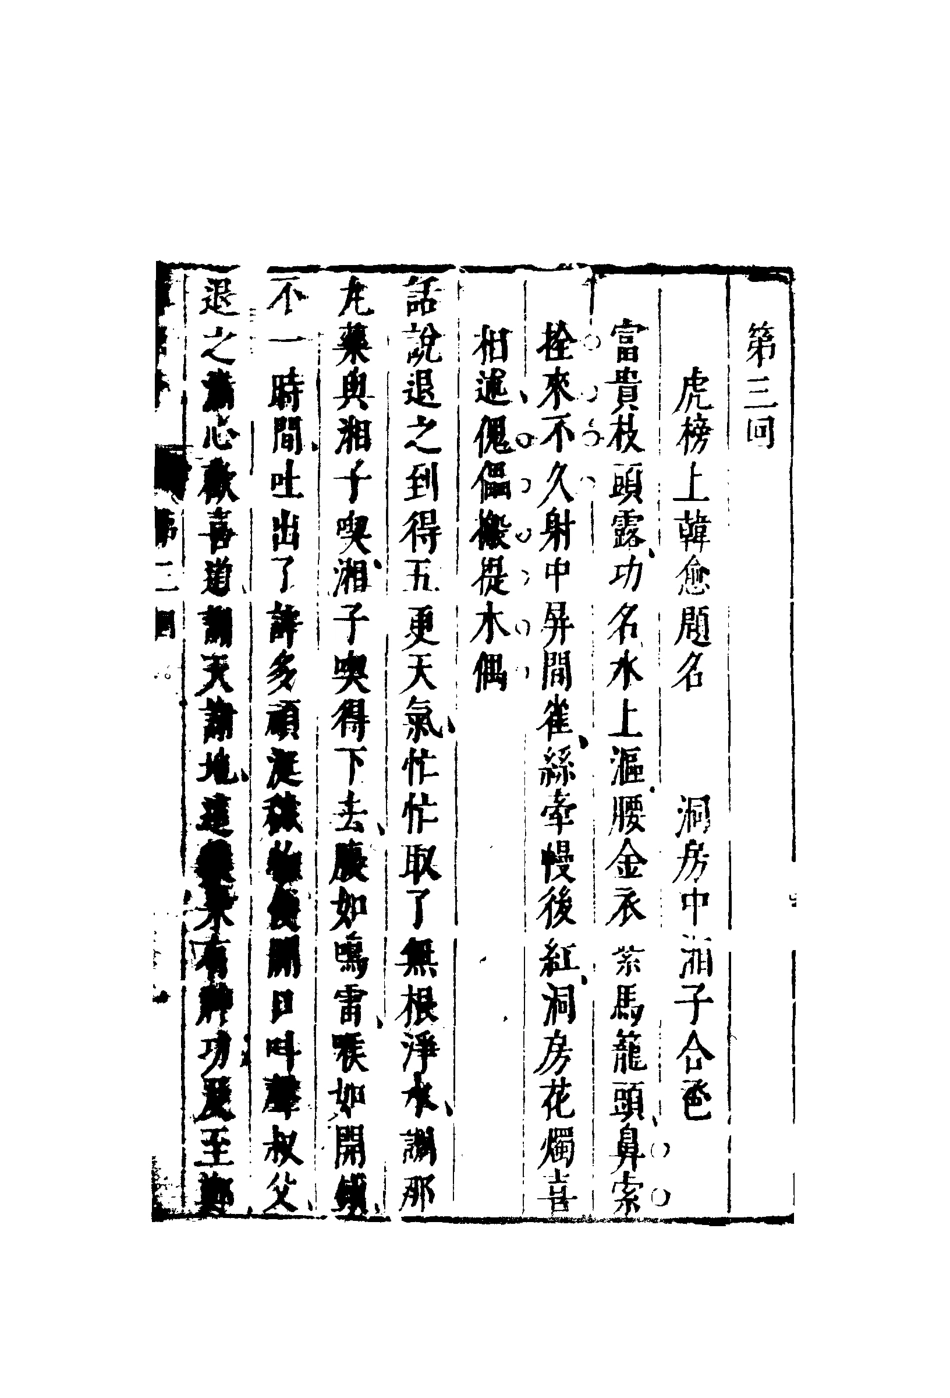 第三回
虎榜上韓愈題名　洞房中湘子合卺
富貴枝頭露功名水上漚腰金衣紫馬籠頭鼻索
拴來不久射中屏間雀絲牽幔後紅洞房花燭喜
相逢傀儡搬提木偶
話說退之到得五更天氣忙忙取了無根淨水調那
丸藥與湘子喫湘子喫得下去腹如鳴雷喉如開鎖
不一時間吐出了許多頑涎穢物便開口叫聲叔父
退之滿心歡喜道謝天謝地這藥果有神功及至鄭